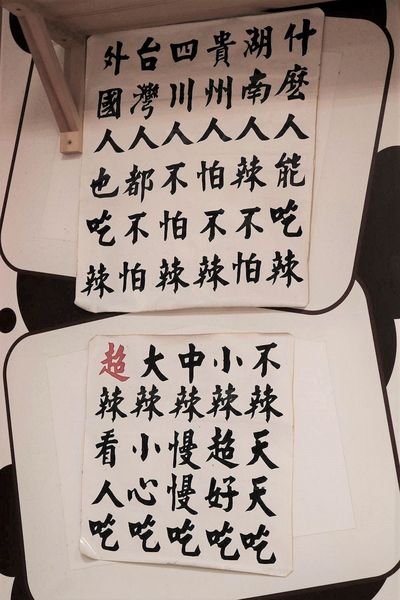 什麼人能吃辣
湖南人辣不怕
貴州人怕不辣
四川人不怕辣
台灣人都不怕
外國人也吃辣
不辣天天吃
小辣超好吃
中辣慢慢吃
大辣小心吃
超辣看人吃